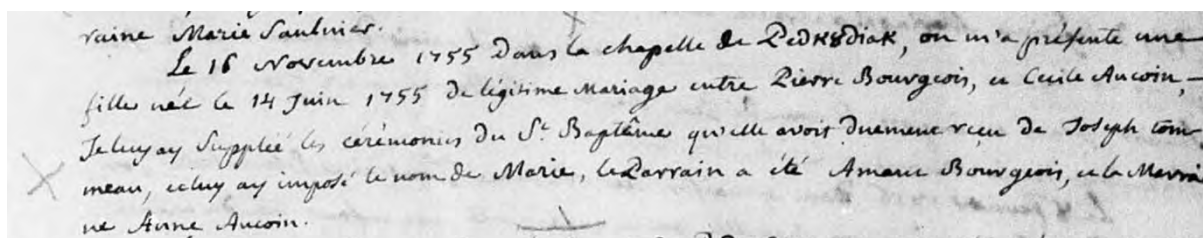 raine Marie Saulnier.
Le 16 Novembre 1755 dans la chapelle de Pedk8diak, on m'a présenté une
fille née le 14 Juin 1755 de légitime Mariage entre Pierre Bourgeois, et Cecile Aucoin,
Je luy ay Suppléé les cérémonies du St. Baptême qu'elle avoit duement reçu de Joseph Com
meau, et luy ay imposé le nom de Marie, le Parrain a été Amand Bourgeois, et la Marrai
ne Anne Aucoin.